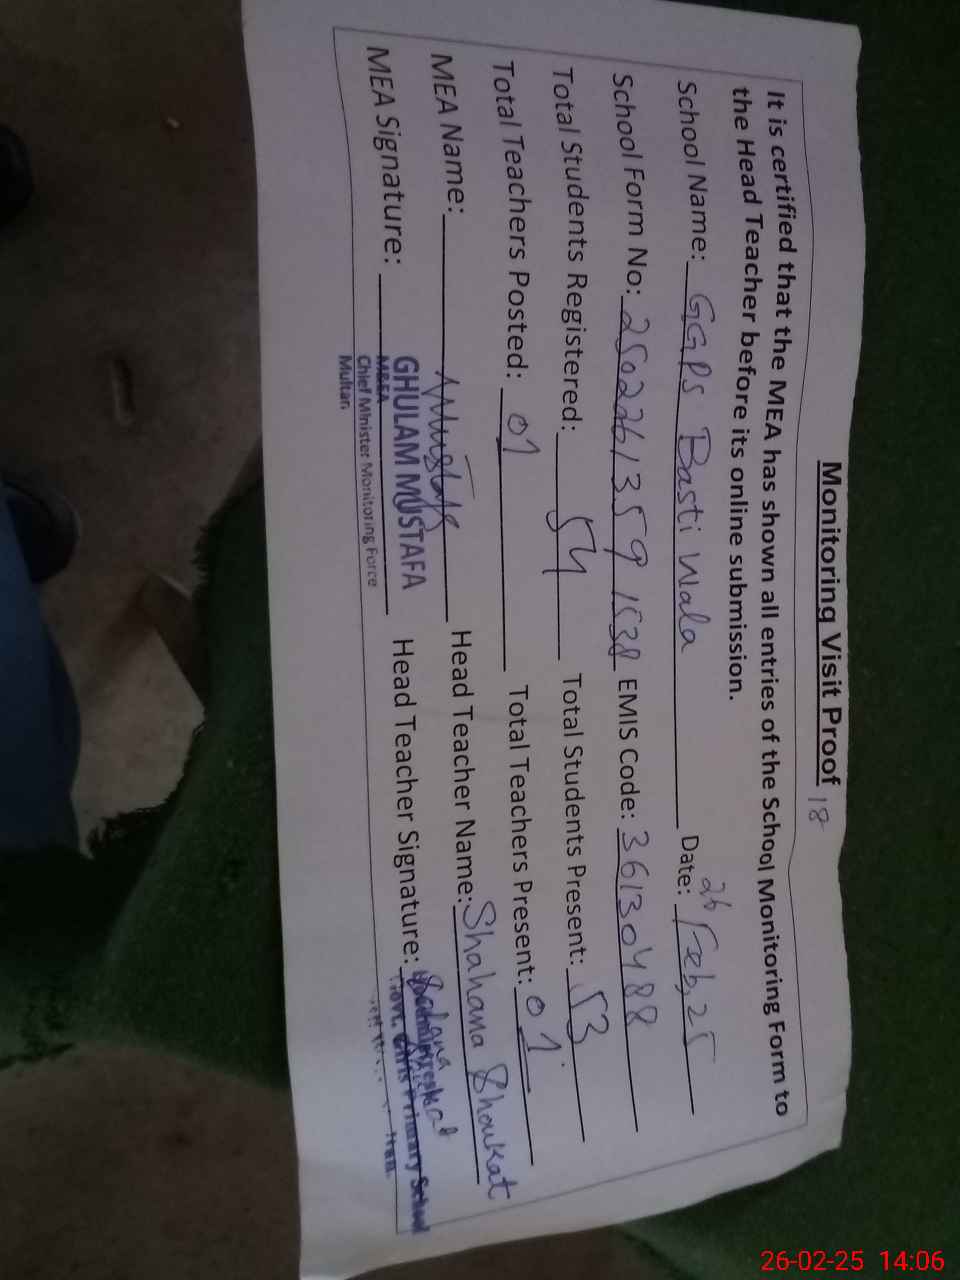 Monitoring Visit Proof 18
It is certified that the MEA has shown all entries of the School Monitoring Form to
the Head Teacher before its online submission.
School Name: GGPS Basti Wala Date: 26 Feb, 25
School Form No: 25022613591538 EMIS Code: 36130488
Total Students Registered: 54 Total Students Present: 53
Total Teachers Posted: 01 Total Teachers Present: 01
MEA Name: Head Teacher Name: Shahana Shoukat
MEA Signature: GHULAM MUSTAFA Head Teacher Signature:
MREA
Chief Minister Monitoring Force
Multan
Govt. Girls Primary School
26-02-25 14:06